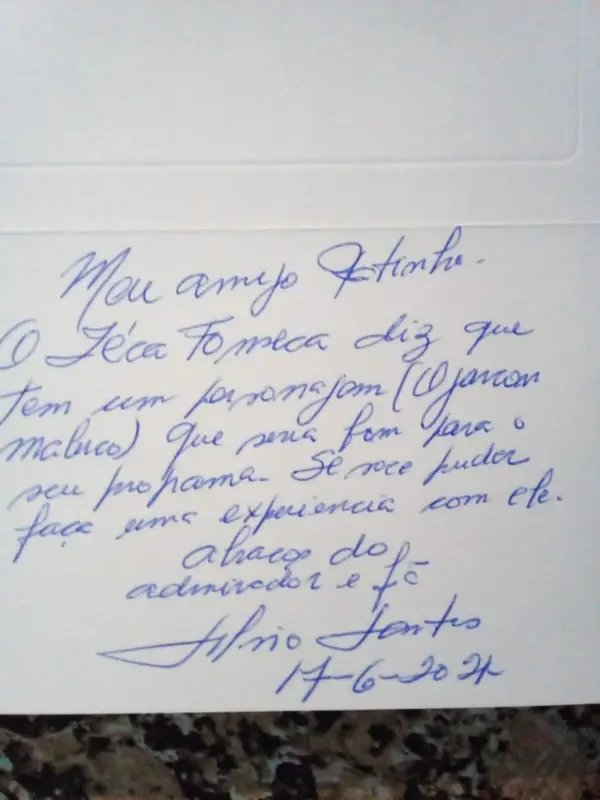 Meu amigo Ratinho.
O Zéca Fonseca diz que
tem um personagem (O garçon
maluco) que seria bom para o
seu programa. Se voce puder
faça uma experiencia com ele.
abraços do
admirador e fã
Silvio Santos
17-6-2021